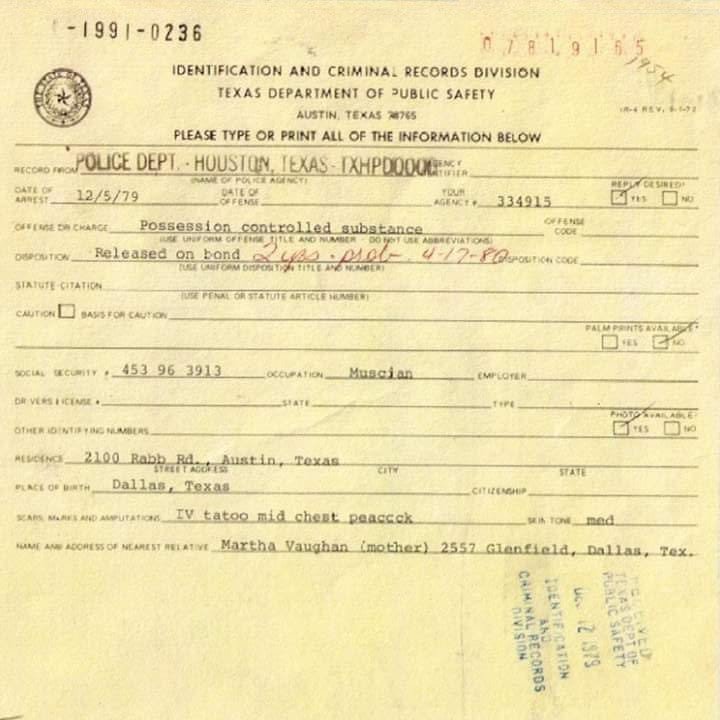 -1991-0236
07819165
1954
IDENTIFICATION AND CRIMINAL RECORDS DIVISION
TEXAS DEPARTMENT OF PUBLIC SAFETY
AUSTIN, TEXAS 78765
IR-4 REV. 9-1-72
PLEASE TYPE OR PRINT ALL OF THE INFORMATION BELOW
RECORD FROM POLICE DEPT. - HOUSTON, TEXAS - TXHPD0000
(NAME OF POLICE AGENCY)
DATE OF ARREST 12/5/79 DATE OF OFFENSE YOUR AGENCY # 334915 REPLY DESIRED? YES NO
OFFENSE OR CHARGE Possession controlled substance OFFENSE CODE
(USE UNIFORM OFFENSE TITLE AND NUMBER - DO NOT USE ABBREVIATIONS)
DISPOSITION Released on bond 2 yrs. prob. 4-17-80 DISPOSITION CODE
(USE UNIFORM DISPOSITION TITLE AND NUMBER)
STATUTE CITATION
(USE PENAL OR STATUTE ARTICLE NUMBER)
CAUTION BASIS FOR CAUTION
PALM PRINTS AVAILABLE?
YES NO
SOCIAL SECURITY # 453 96 3913 OCCUPATION Muscian EMPLOYER
DRIVERS LICENSE # STATE TYPE
PHOTO AVAILABLE?
OTHER IDENTIFYING NUMBERS YES NO
RESIDENCE 2100 Rabb Rd., Austin, Texas
STREET ADDRESS CITY STATE
PLACE OF BIRTH Dallas, Texas CITIZENSHIP
SCARS, MARKS AND AMPUTATIONS IV tatoo mid chest peaccck SKIN TONE med
NAME AND ADDRESS OF NEAREST RELATIVE Martha Vaughan (mother) 2557 Glenfield, Dallas, Tex.
RECEIVED
TEXAS DEPT OF
PUBLIC SAFETY
12 1979
IDENTIFICATION
AND
CRIMINAL RECORDS
DIVISION